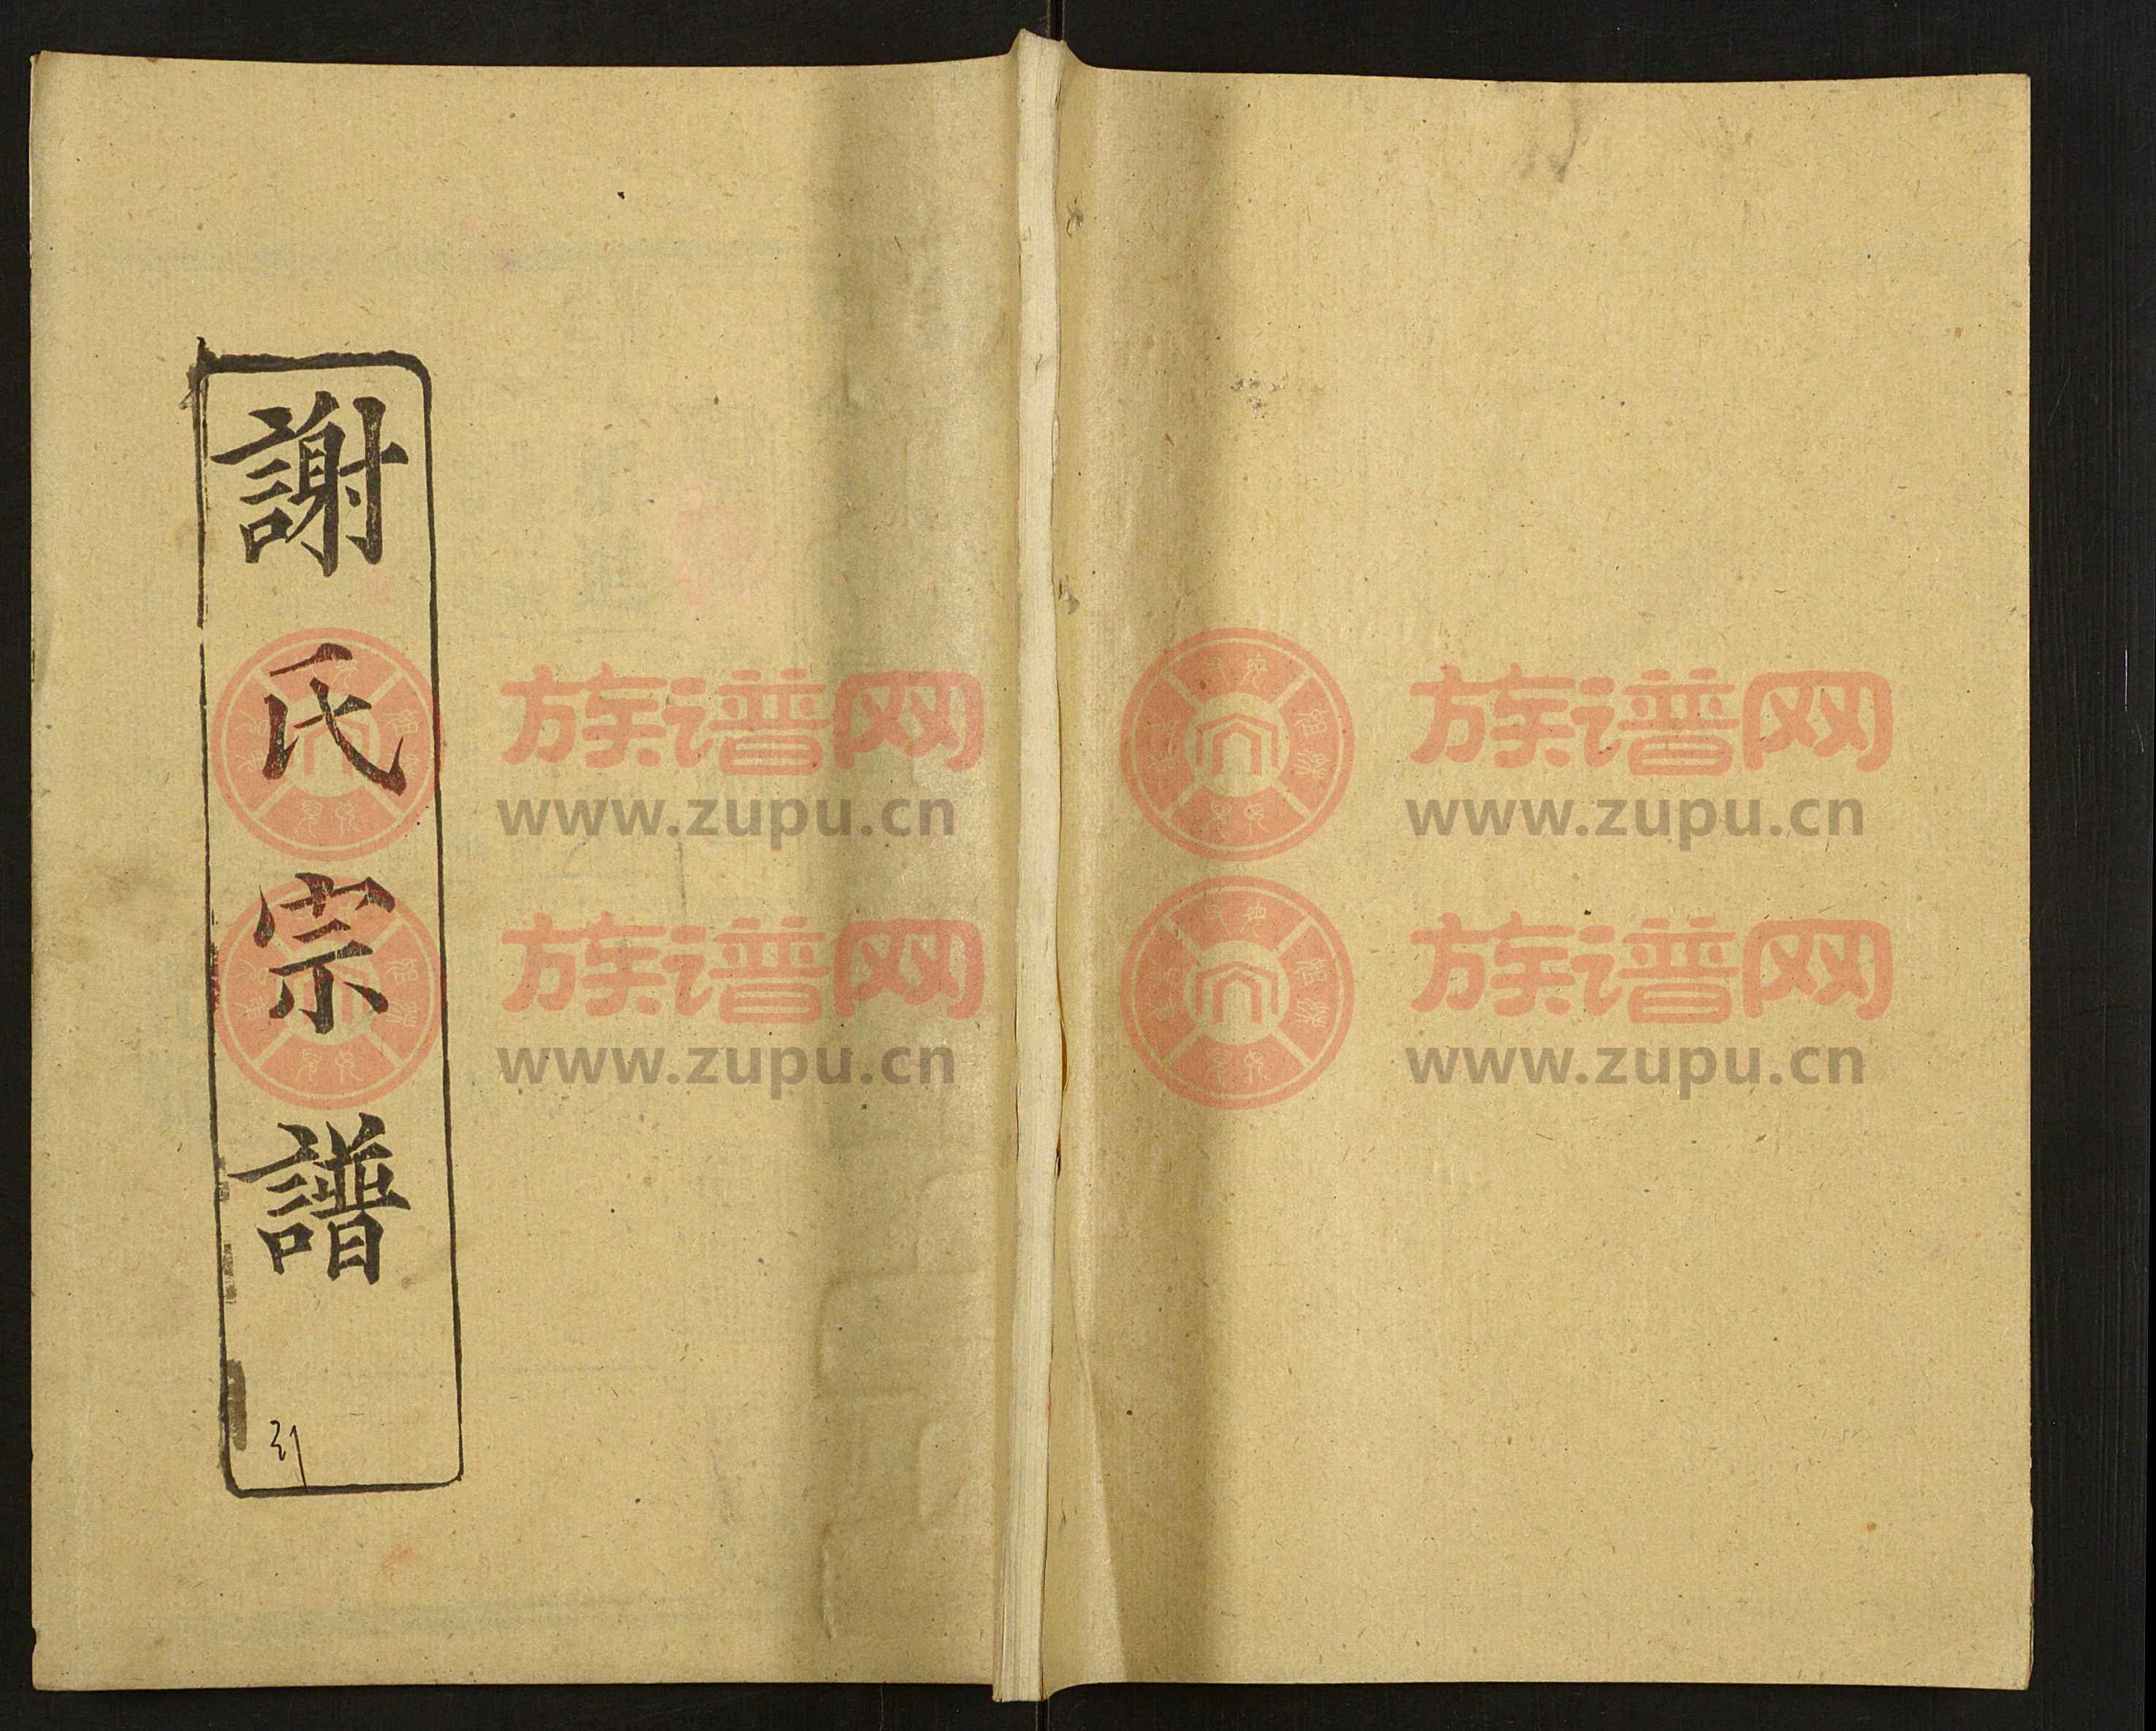 謝氏宗譜
族谱网
www.zupu.cn
族谱网
www.zupu.cn
族谱网
www.zupu.cn
族谱网
www.zupu.cn